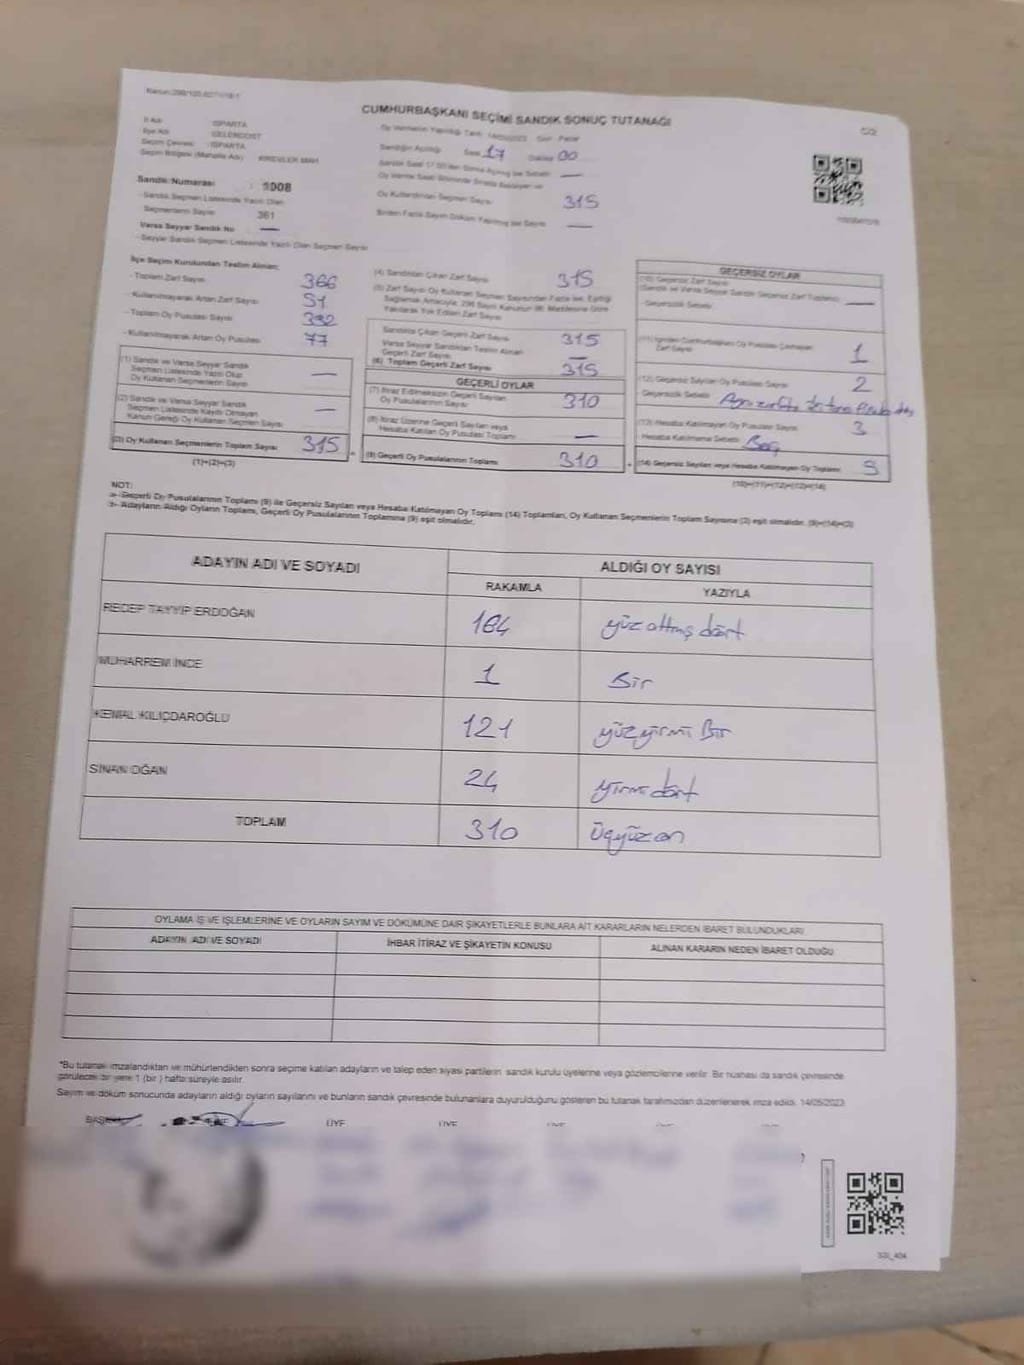 Kanun:298/105
CUMHURBAŞKANI SEÇİMİ SANDIK SONUÇ TUTANAĞI
İl Adı : ISPARTA
İlçe Adı : GELENDOST
Seçim Çevresi : ISPARTA
Seçim Bölgesi (Mahalle Adı)
Sandık Numarası : 1008
- Sandık Seçmen Listesinde Yazılı Olan
Seçmenlerin Sayısı 361
Varsa Seyyar Sandık No —
- Seyyar Sandık Seçmen Listesinde Yazılı Olan Seçmen Sayısı
Oy Vermenin Yapıldığı Tarih Gün Pazar
Sandığın Açıldığı Saat 17 Dakika 00
Oy Kullandırılan Seçmen Sayısı 315
Birden Fazla Sayım Döküm Yapılmış ise Sayısı —
İlçe Seçim Kurulundan Teslim Alınan;
- Toplam Zarf Sayısı 366
- Kullanılmayarak Artan Zarf Sayısı 51
- Toplam Oy Pusulası Sayısı 392
- Kullanılmayarak Artan Oy Pusulası 77
(1) Sandık ve Varsa Seyyar Sandık
Seçmen Listesinde Yazılı Olup
Oy Kullanan Seçmenlerin Sayısı —
(2) Sandık ve Varsa Seyyar Sandık
Seçmen Listesinde Kaydı Olmayan
Kanun Gereği Oy Kullanan Seçmen Sayısı —
(3) Oy Kullanan Seçmenlerin Toplam Sayısı 315
(1)+(2)=(3)
(4) Sandıktan Çıkan Zarf Sayısı 315
(5) Zarf Sayısı Oy Kullanan Seçmen Sayısından Fazla ise, Eşitliği
Sağlamak Amacıyla, 298 Sayılı Kanunun 98. Maddesine Göre
Yakılarak Yok Edilen Zarf Sayısı
Sandıkta Çıkan Geçerli Zarf Sayısı 315
Varsa Seyyar Sandıktan Teslim Alınan
Geçerli Zarf Sayısı —
(6) Toplam Geçerli Zarf Sayısı 315
GEÇERLİ OYLAR
(7) İtiraz Edilmeksizin Geçerli Sayılan
Oy Pusulalarının Sayısı 310
(8) İtiraz Üzerine Geçerli Sayılan veya
Hesaba Katılan Oy Pusulası Toplamı —
(9) Geçerli Oy Pusulalarının Toplamı 310
GEÇERSİZ OYLAR
(10) Geçersiz Zarf Sayısı
(Sandık ve Varsa Seyyar Sandık Geçersiz Zarf Toplamı) —
- Geçersizlik Sebebi
(11) İçinden Cumhurbaşkanı Oy Pusulası Çıkmayan
Zarf Sayısı 1
(12) Geçersiz Sayılan Oy Pusulası Sayısı 2
- Geçersizlik Sebebi
(13) Hesaba Katılmayan Oy Pusulası Sayısı 3
- Hesaba Katılmama Sebebi Boş
(14) Geçersiz Sayılan veya Hesaba Katılmayan Oy Toplamı 5
(10)+(11)+(12)+(13)=(14)
NOT:
a- Geçerli Oy Pusulalarının Toplamı (9) ile Geçersiz Sayılan veya Hesaba Katılmayan Oy Toplamı (14) Toplamları, Oy Kullanan Seçmenlerin Toplam Sayısına (3) eşit olmalıdır. (9)+(14)=(3)
b- Adayların Aldığı Oyların Toplamı, Geçerli Oy Pusulalarının Toplamına (9) eşit olmalıdır.
ADAYIN ADI VE SOYADI ALDIĞI OY SAYISI
RAKAMLA YAZIYLA
RECEP TAYYİP ERDOĞAN 164 yüz altmış dört
MUHARREM İNCE 1 Bir
KEMAL KILIÇDAROĞLU 121 yüzyirmi Bir
SİNAN OĞAN 24 yirmi dört
TOPLAM 310 Üçyüzon
OYLAMA İŞ VE İŞLEMLERİNE VE OYLARIN SAYIM VE DÖKÜMÜNE DAİR ŞİKAYETLERLE BUNLARA AİT KARARLARIN NELERDEN İBARET BULUNDUKLARI
ADAYIN ADI VE SOYADI İHBAR İTİRAZ VE ŞİKAYETİN KONUSU ALINAN KARARIN NEDEN İBARET OLDUĞU
*Bu tutanak imzalandıktan ve mühürlendikten sonra seçime katılan adayların ve talep eden siyasi partilerin sandık kurulu üyelerine veya gözlemcilerine verilir. Bir nüshası da sandık çevresinde
görülecek bir yere 1 (bir) hafta süreyle asılır.
Sayım ve döküm sonucunda adayların aldığı oyların sayılarını ve bunların sandık çevresinde bulunanlara duyurulduğunu gösteren bu tutanak tarafımızdan düzenlenerek imza edildi. 14/05/2023
BAŞKAN ÜYE ÜYE